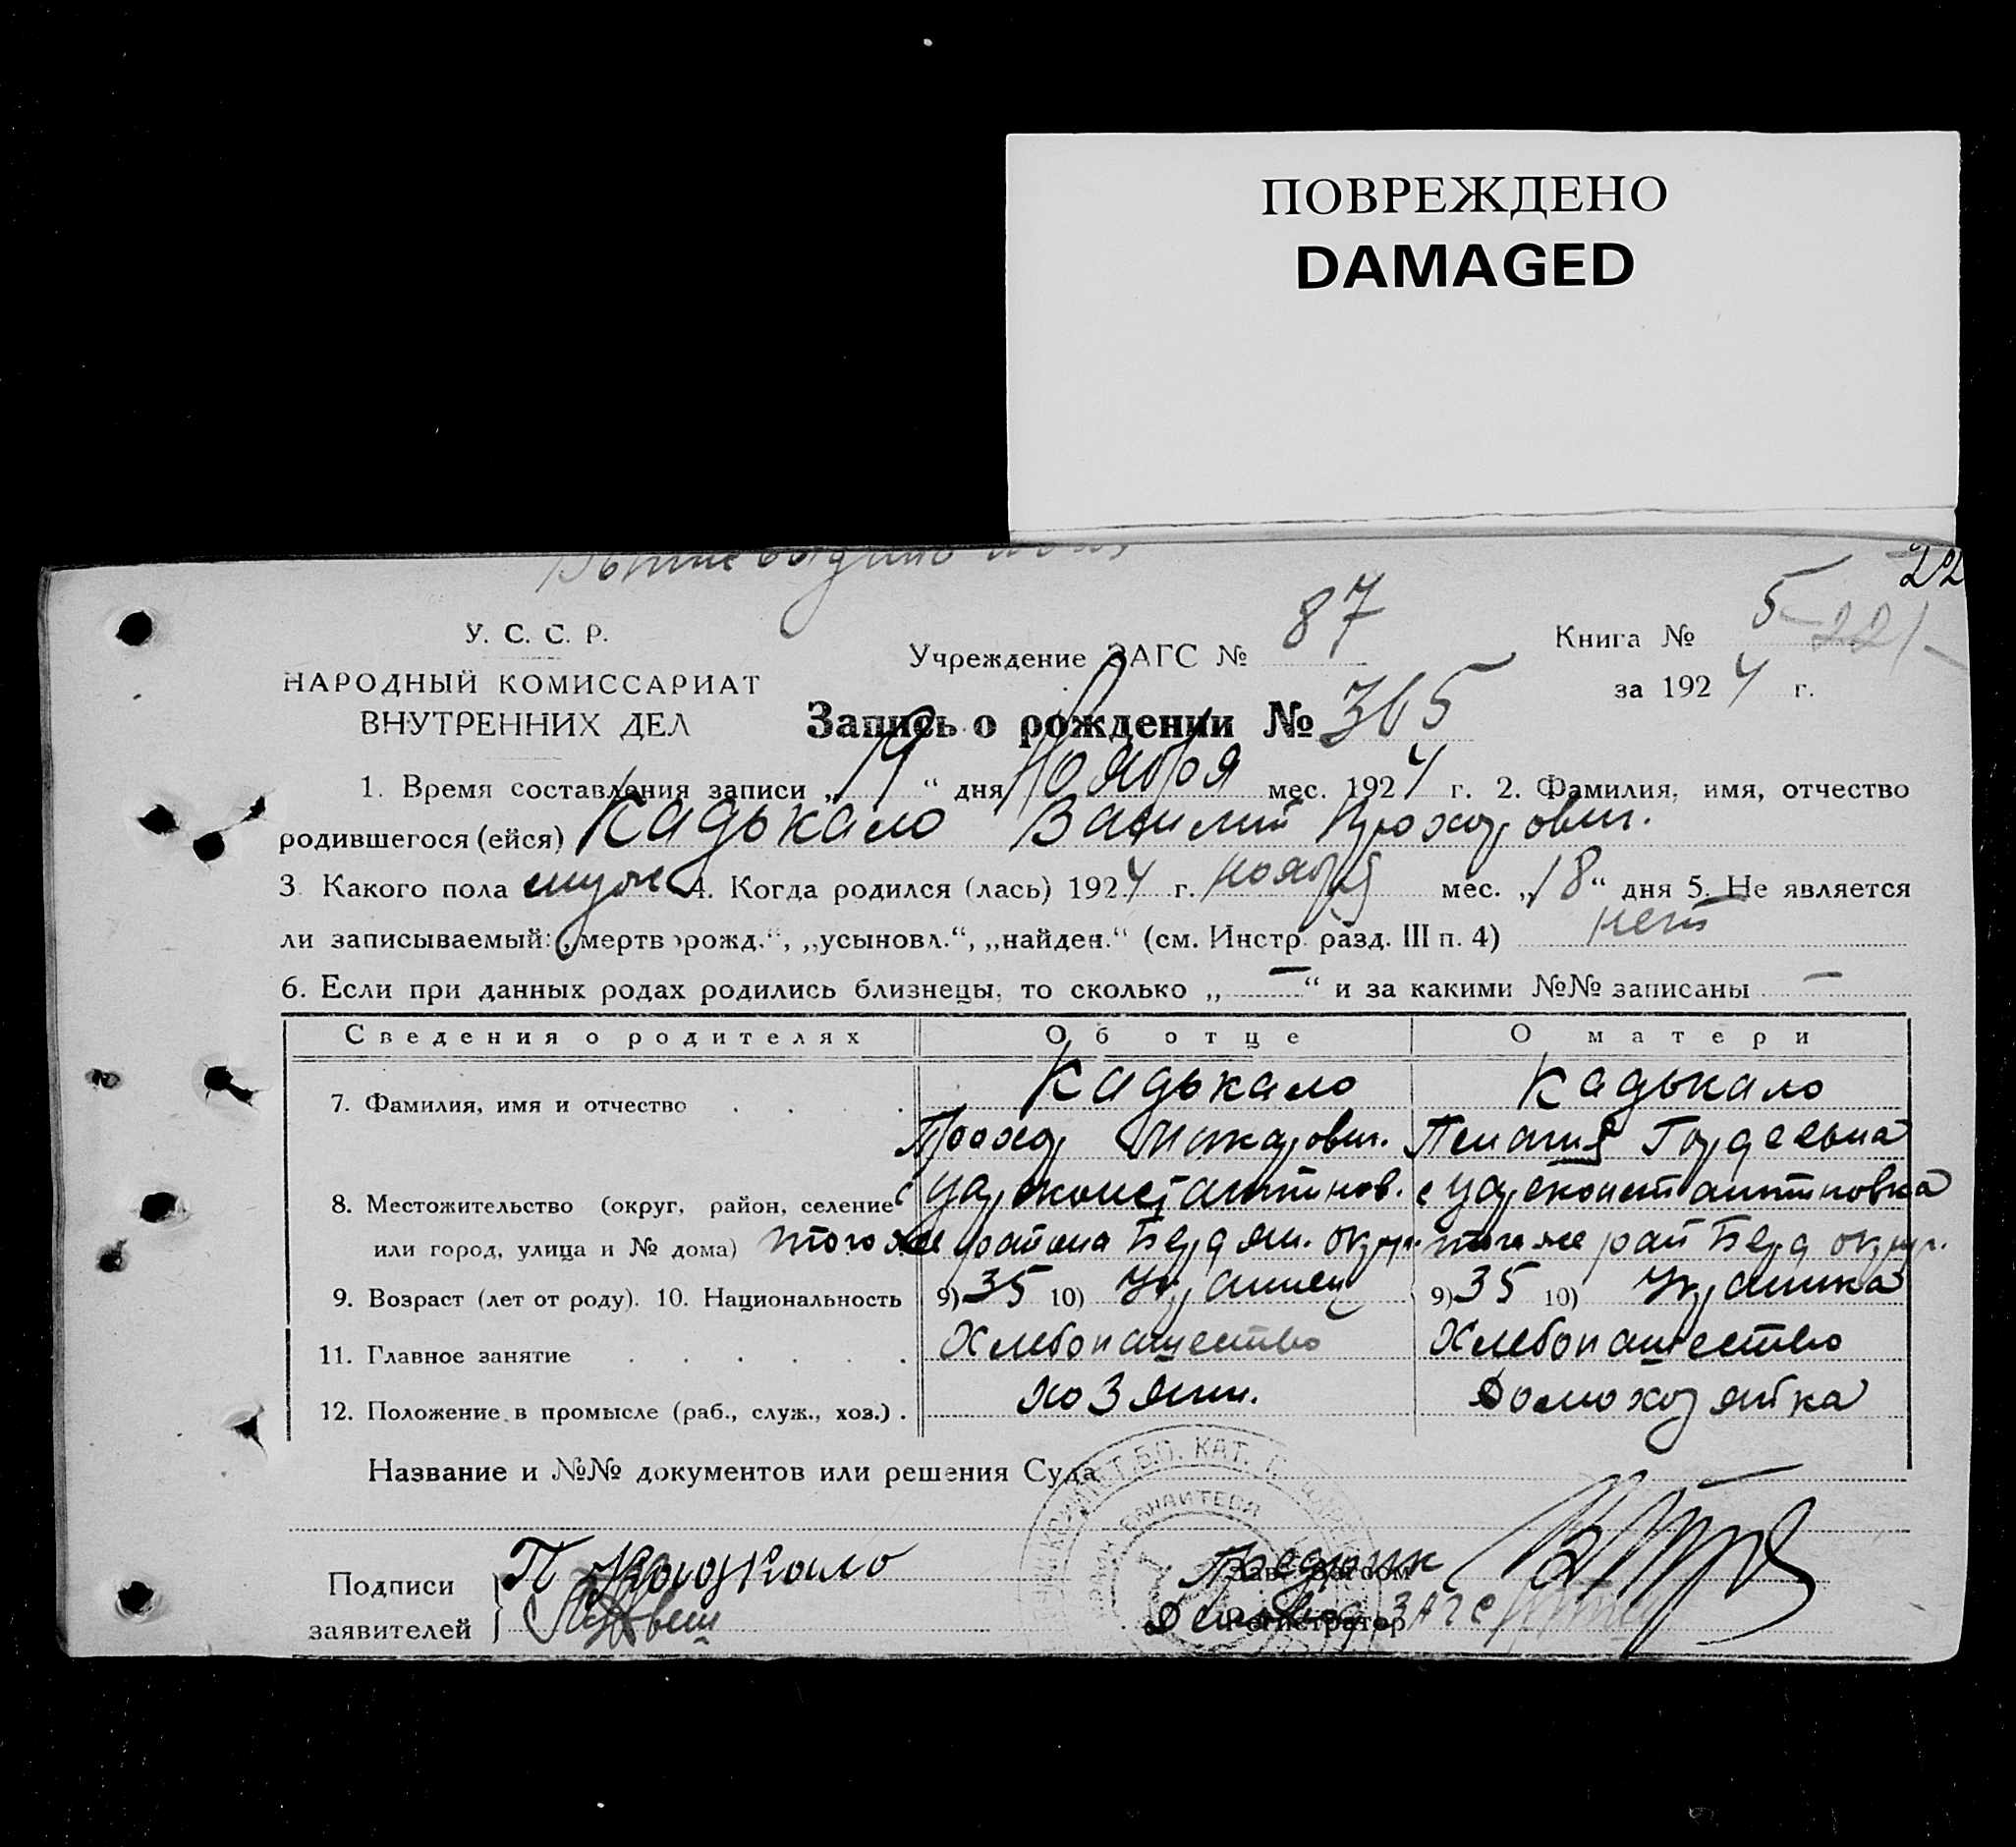 ПОВРЕЖДЕНО
DAMAGED
22
У. С. С. Р.
НАРОДНЫЙ КОМИССАРИАТ
ВНУТРЕННИХ ДЕЛ
Учреждение ЗАГС № 87
Книга № 5 221
за 1924 г.
Запись о рождении № 365
1. Время составления записи „19“ дня Ноября мес. 1924 г. 2. Фамилия, имя, отчество
родившегося (ейся) Кадькало Василий Прохорович.
3. Какого пола муж 4. Когда родился (лась) 1924 г. ноября мес. „18“ дня 5. Не является
ли записываемый: „мертворожд.“, „усыновл.“, „найден.“ (см. Инстр. разд. III п. 4) нет
6. Если при данных родах родились близнецы, то сколько „—“ и за какими №№ записаны —
Сведения о родителях Об отце О матери
7. Фамилия, имя и отчество Кадькало Кадькало
Прохор Макарович. Пелагия Гордеевна
8. Местожительство (округ, район, селение с Цареконстантинов. с Цареконстантиновка
или город, улица и № дома) того же района Бердян. округ. того же рай Берд округ.
9. Возраст (лет от роду). 10. Национальность 9) 35 10) Украинец 9) 35 10) Украинка
11. Главное занятие Хлебопашество Хлебопашество
12. Положение в промысле (раб., служ., хоз.) хозяин. Домохозяйка
Название и №№ документов или решения Суда
Подписи П Кадькало
заявителей
Зав. Загсом
Регистратор ЗАГС